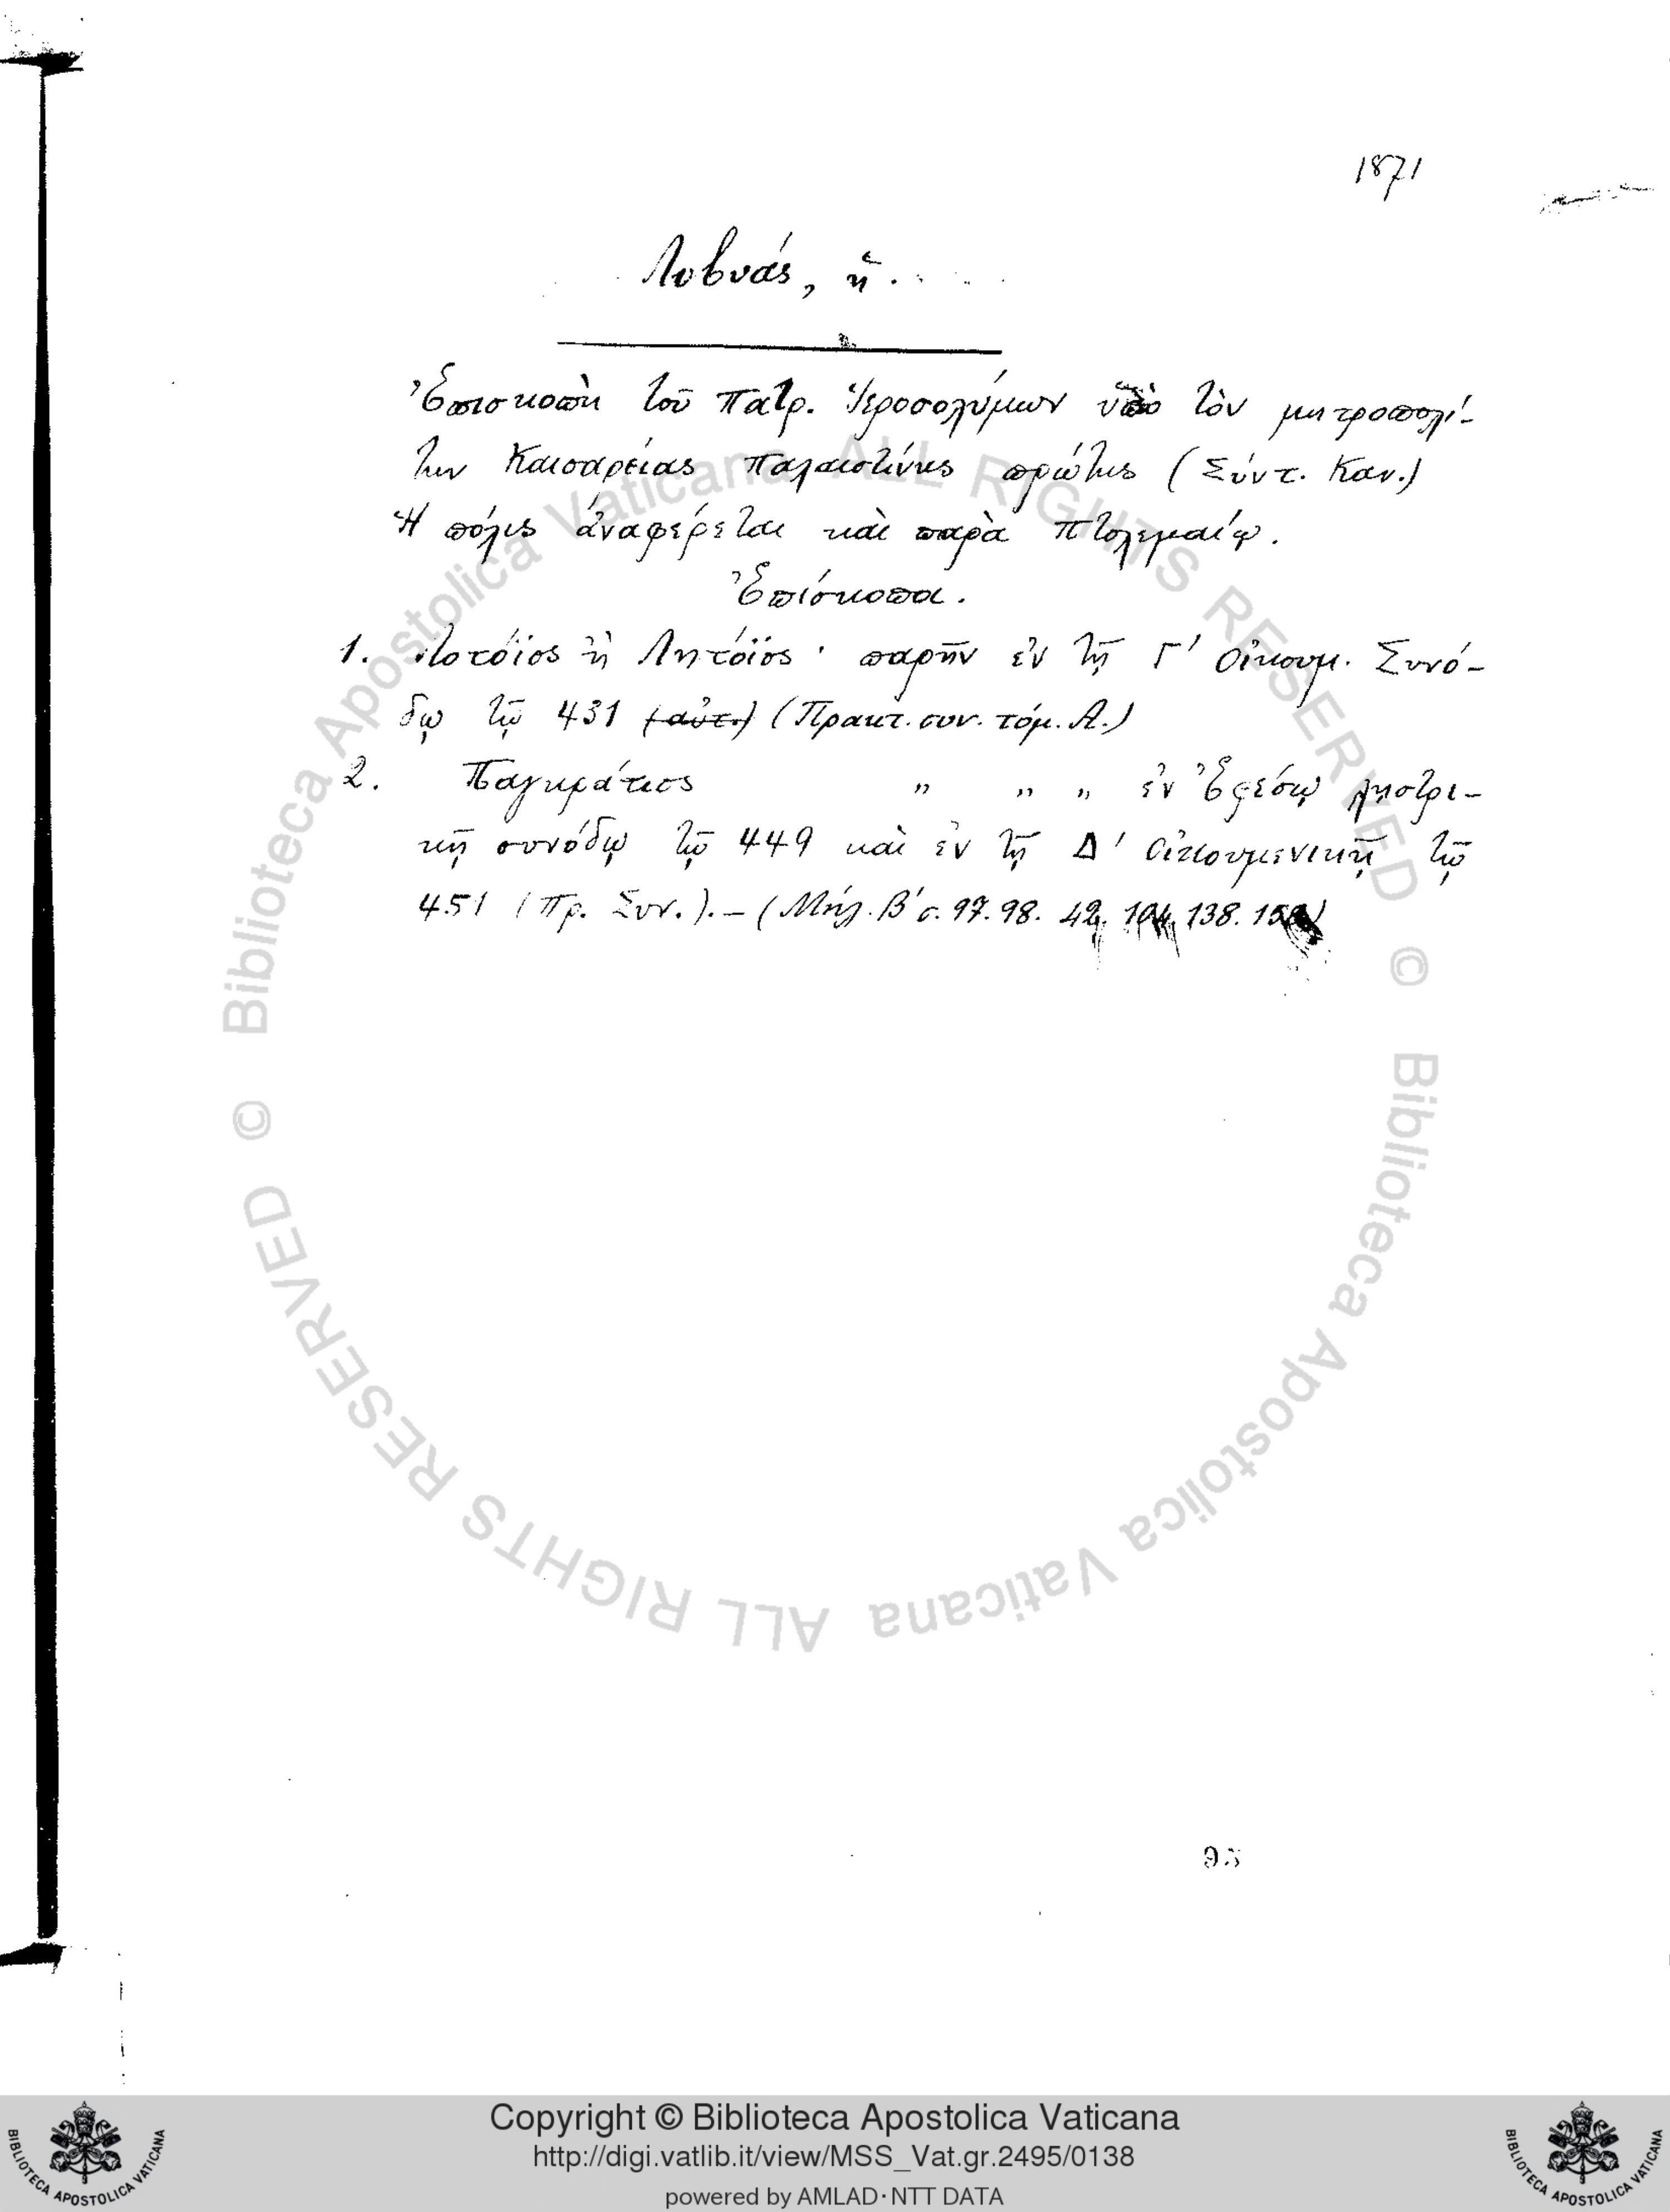 1871
Λυβνάς, ἡ.
Ἐπισκοπὴ τοῦ Πατρ. Ἱεροσολύμων ὑπὸ τὸν μητροπολί-
την Καισαρείας Παλαιστίνης πρώτης (Σύντ. Καν.)
Ἡ πόλις ἀναφέρεται καὶ παρὰ Πτολεμαίῳ.
Ἐπίσκοποι.
1. ἢ Λητόϊος · παρῆν ἐν τῇ Γ' Οἰκουμ. Συνό-
δῳ τῷ 431 (αὐτ.) (Πρακτ. συν. τόμ. Α.)
2. Παγκράτιος " " " ἐν Ἐφέσῳ λῃστρι-
κῇ συνόδῳ τῷ 449 καὶ ἐν τῇ Δ' Οἰκουμενικῇ τῷ
451 (Πρ. Συν.). – (Μήλ. Β' σ. 97. 98. 138.
95
Copyright © Biblioteca Apostolica Vaticana
http://digi.vatlib.it/view/MSS_Vat.gr.2495/0138
powered by AMLAD·NTT DATA
BIBLIOTECA APOSTOLICA VATICANA
BIBLIOTECA APOSTOLICA VATICANA
© Biblioteca Apostolica Vaticana ALL RIGHTS RESERVED
© Biblioteca Apostolica Vaticana ALL RIGHTS RESERVED